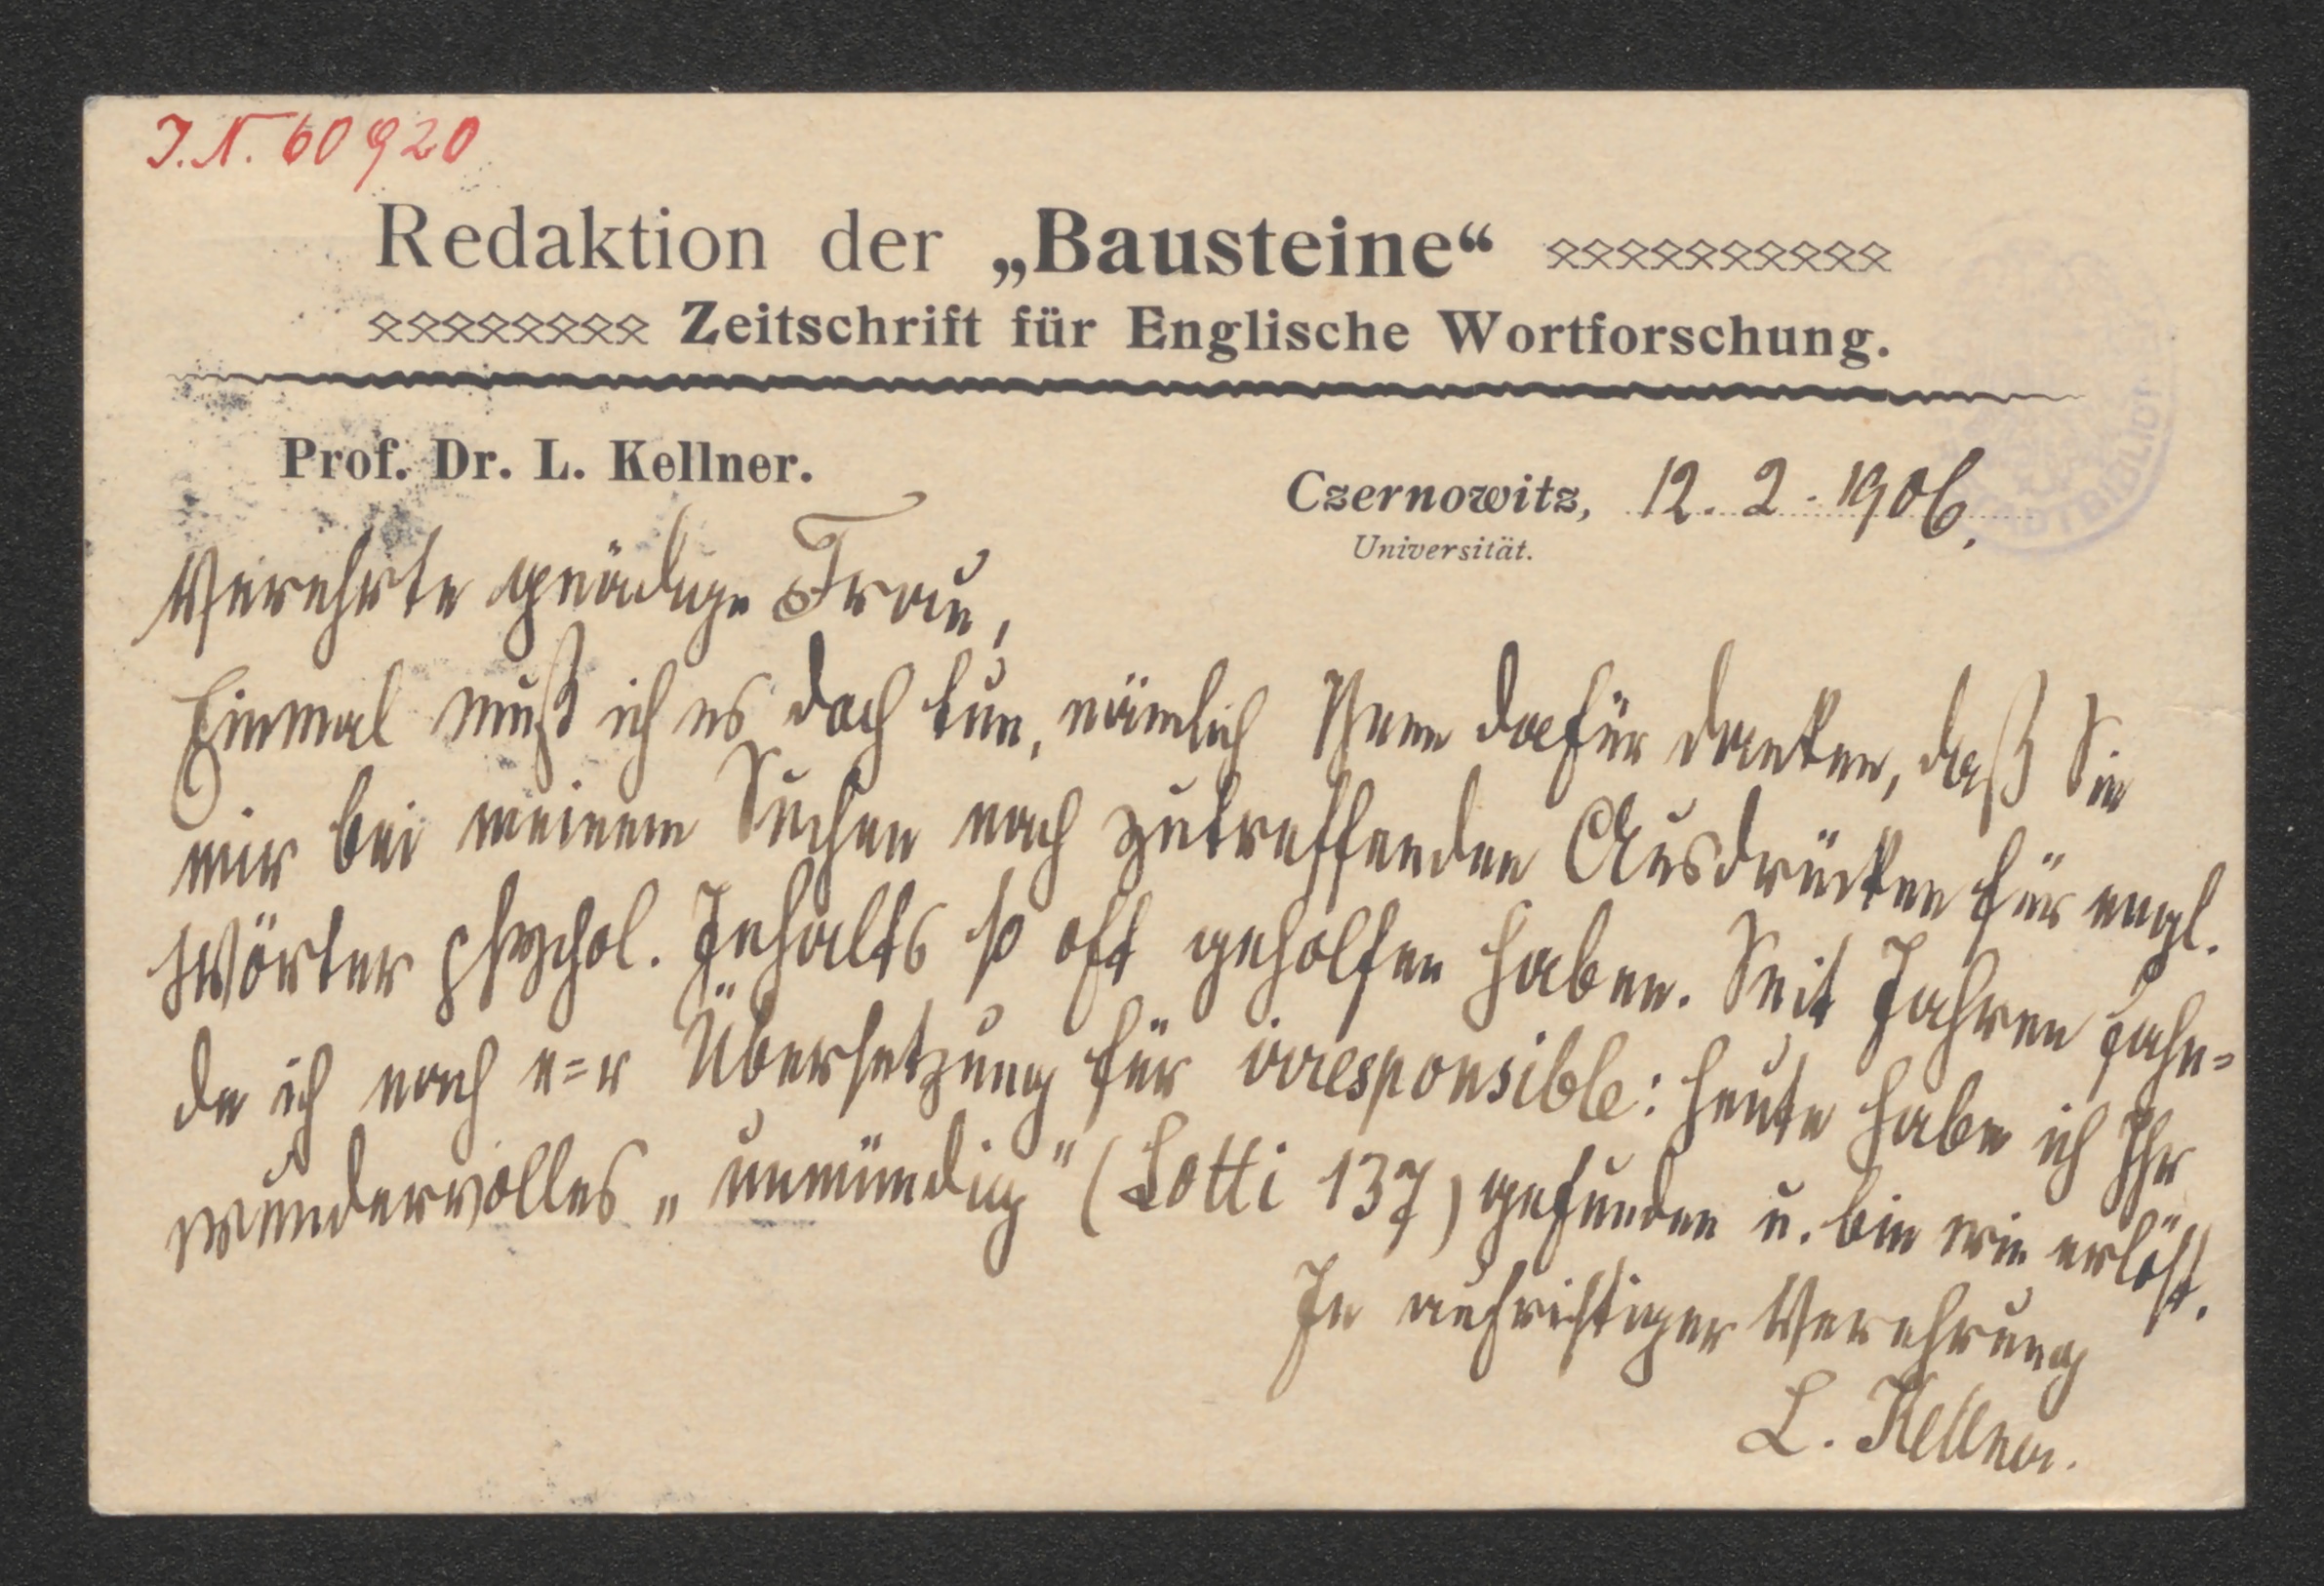 J.N. 60920
Redaktion der „Bausteine“
Zeitschrift für Englische Wortforschung.
Prof. Dr. L. Kellner.
Czernowitz, 12. 2. 1906.
Universität.
Verehrte gnädige Frau,
Einmal muß ich es doch tun, nämlich Ihnen dafür danken, daß Sie
mir bei meinem Suchen nach zutreffenden Ausdrücken für engl.
Wörter psychol. Inhalts so oft geholfen haben. Seit Jahren fahn=
de ich nach e=r Übersetzung für irresponsible: heute habe ich Ihr
wundervolles „unmündig“ (Lotti 137) gefunden u. bin wie erlöst.
In aufrichtiger Verehrung
L. Kellner.